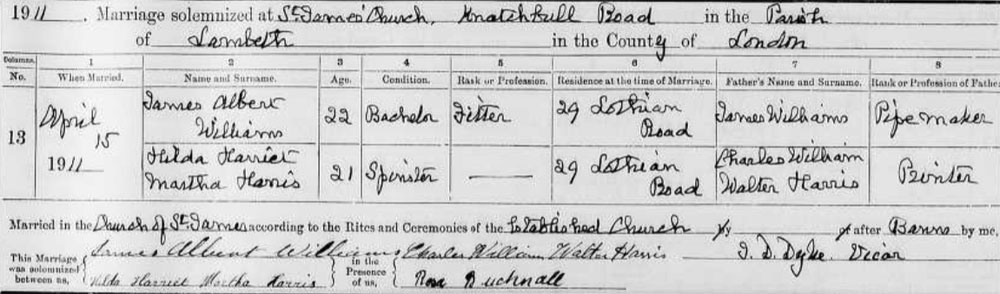 1911. Marriage solemnized at St. James' Church, Knatchbull Road in the Parish
of Lambeth in the County of London
Columns. 1 2 3 4 5 6 7 8
No. When Married. Name and Surname. Age. Condition. Rank or Profession. Residence at the time of Marriage. Father's Name and Surname. Rank or Profession of Father
13 April 15 1911 James Albert Williams 22 Bachelor Fitter 29 Lothian Road James Williams Pipe maker
Hilda Harriet Martha Harris 21 Spinster 29 Lothian Road Charles William Walter Harris Printer
Married in the Church of St. James according to the Rites and Ceremonies of the Established Church by or after Banns by me,
This Marriage was solemnized between us, James Albert Williams in the Presence of us, Charles William Walter Harris J. D. Dyke. Vicar
Hilda Harriet Martha Harris Rosa Bucknall